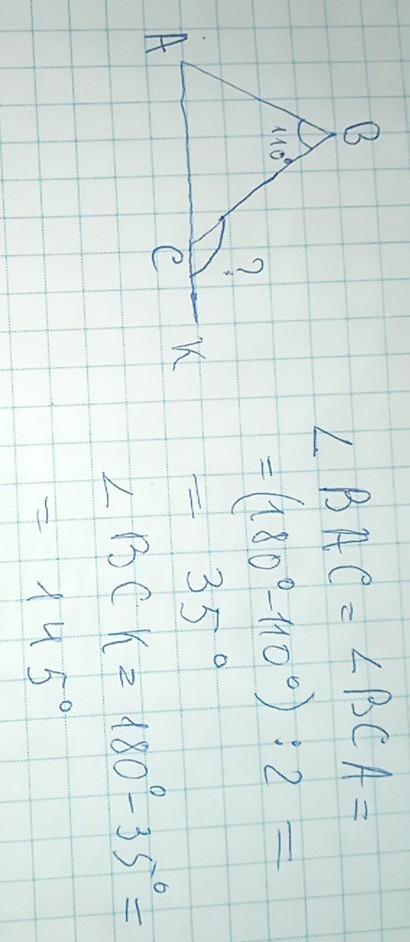 B
110°
A
C
?
K
∠BAC = ∠BCA =
= (180° - 110°) : 2 =
= 35°
∠BCK = 180° - 35° =
= 145°